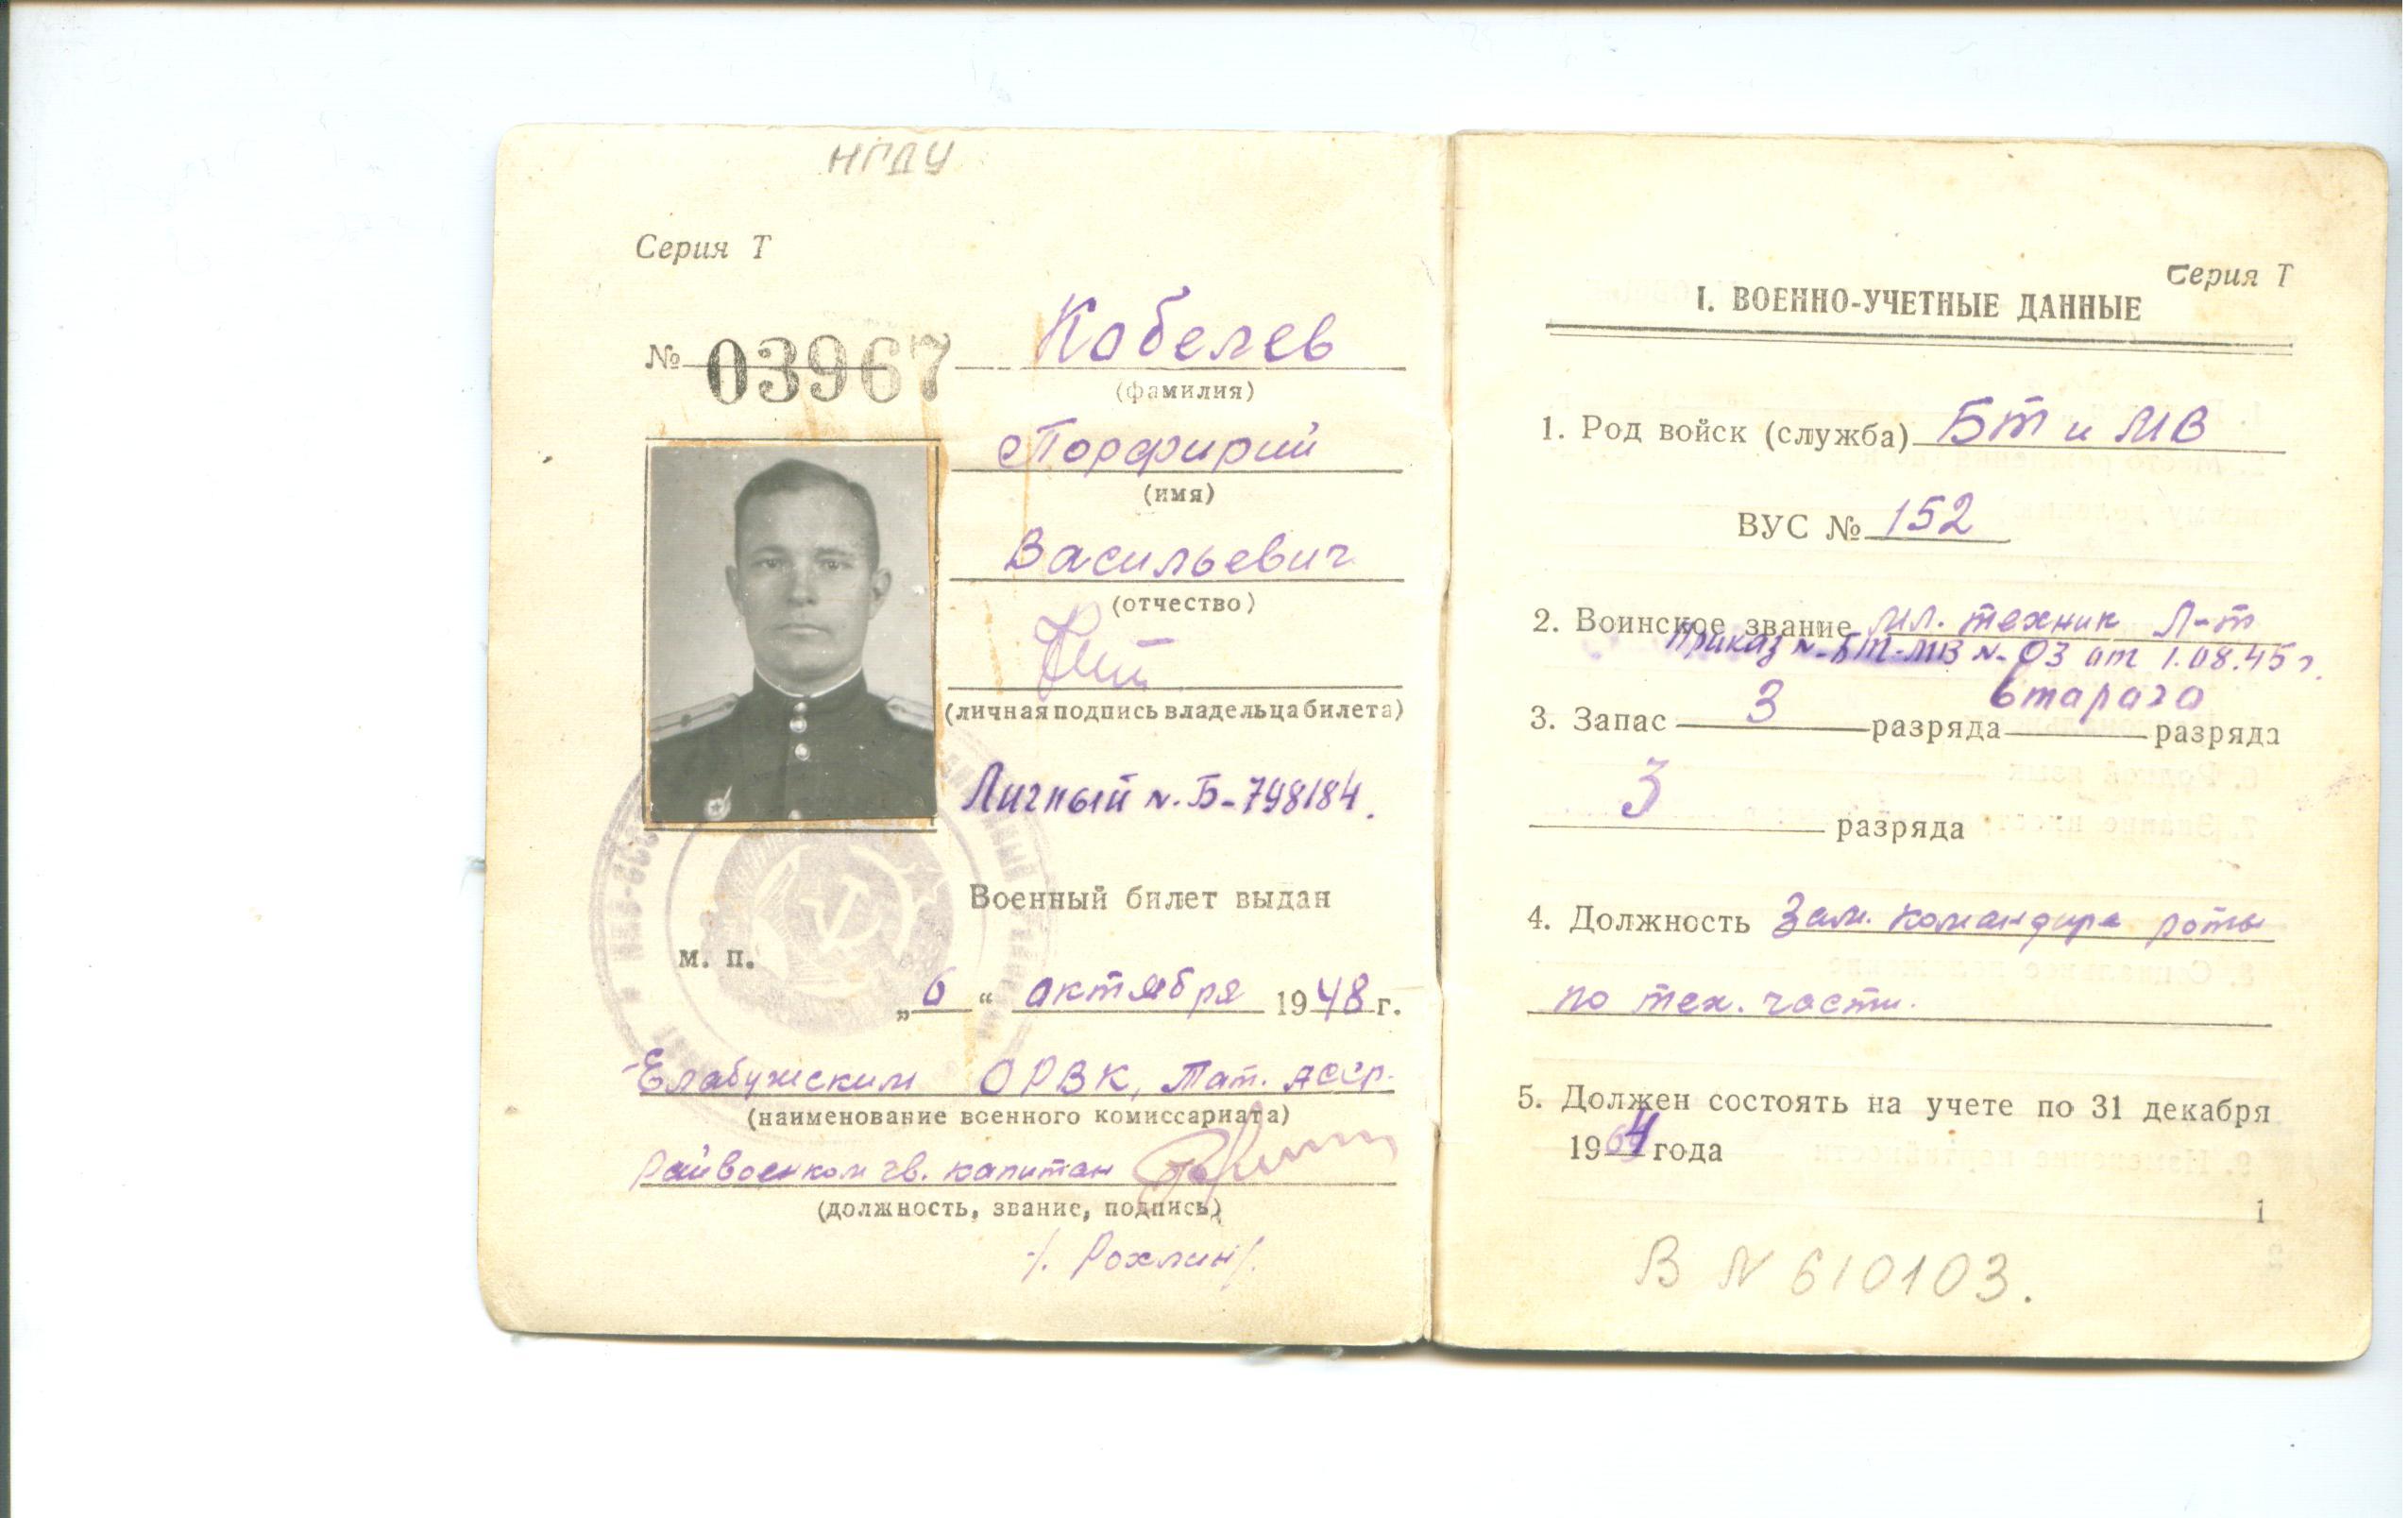 НГДУ
Серия Т
№ 03967 Кобелев
(фамилия)
Порфирий
(имя)
Васильевич
(отчество)
(личная подпись владельца билета)
Личный N. Б-798184.
Военный билет выдан
М. П.
„6“ октября 1948 г.
Елабужским ОРВК, Тат. АССР.
(наименование военного комиссариата)
Райвоенком гв. капитан
(должность, звание, подпись)
/. Рохлин/.
Серия Т
I. ВОЕННО-УЧЕТНЫЕ ДАННЫЕ
1. Род войск (служба) БТ и МВ
ВУС № 152
2. Воинское звание мл. техник Л-т
Приказ N-БТ-МВ N-03 от 1.08.45 г.
3. Запас 3 разряда второго разряда
3 разряда
4. Должность Зам. командира роты
по тех. части.
5. Должен состоять на учете по 31 декабря
1964 года
1
В N 610103.